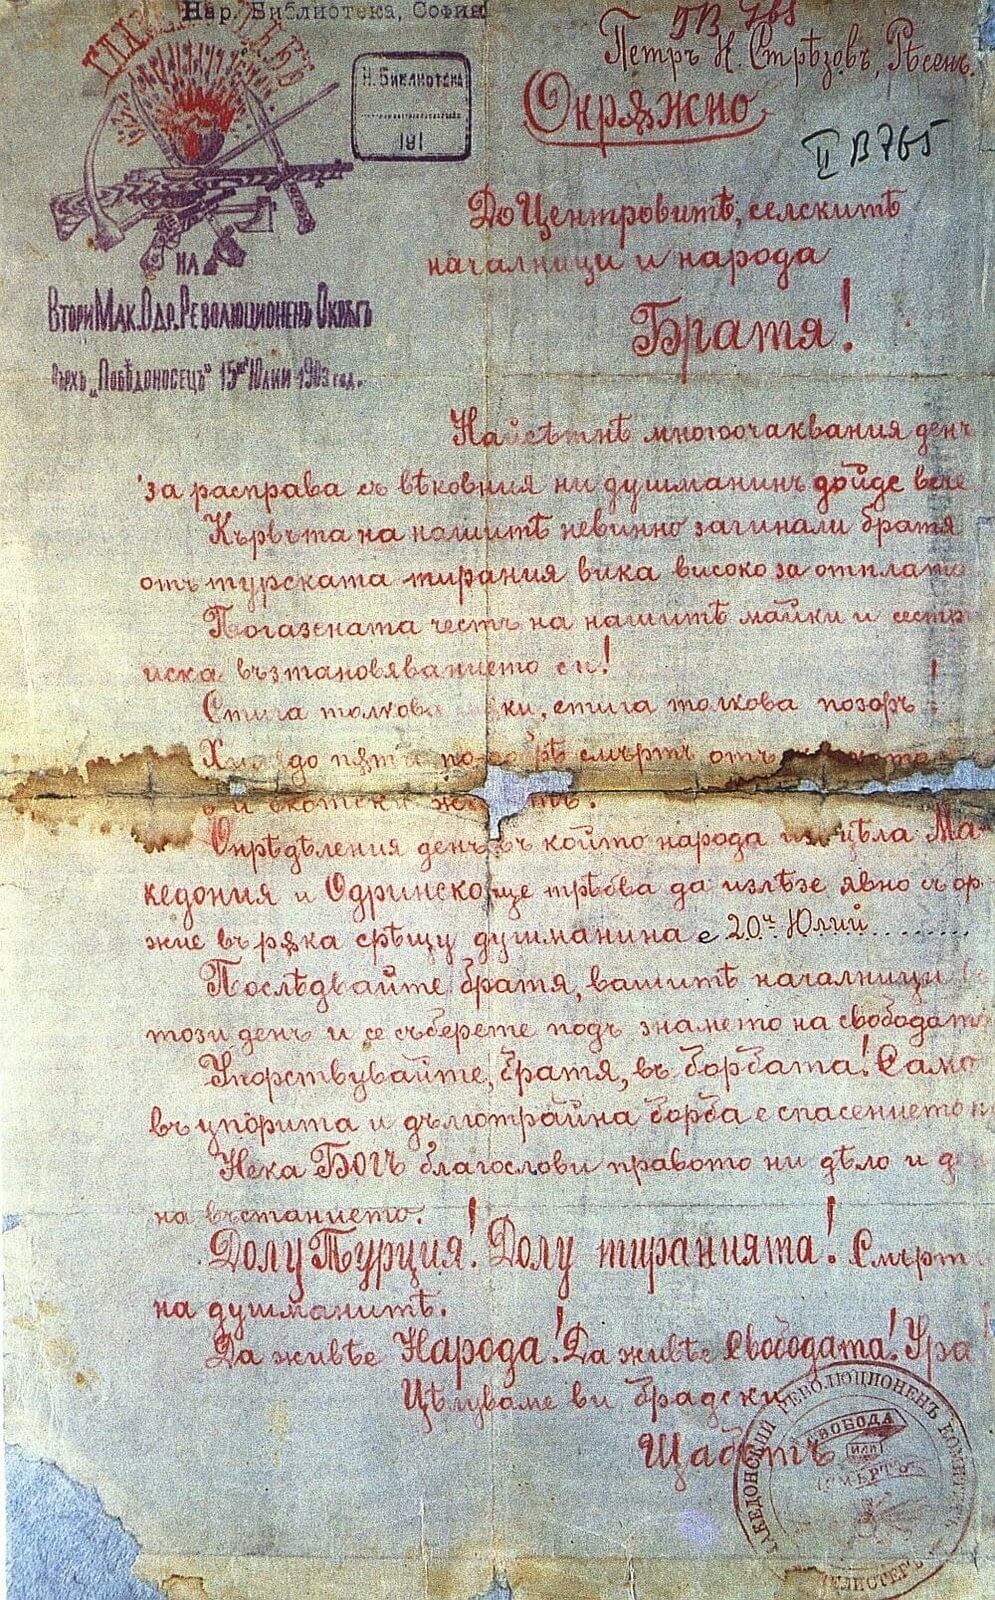 Нар. Библиотека, София
II В 765
Петръ Н. Стрѣзовъ, Рѣсенъ.
Н. Библиотека
191
Окрѫжно
II В 765
До Центровитѣ, селскитѣ
началници и народа
НА
Втори Мак. Одр. Революционенъ Окрѫгъ
Върхъ „Побѣдоносецъ" 15ий Юлий 1903 год.
Братя!
Найсѣтнѣ многоочаквания денъ
за расправа съ вѣковния ни душманинъ дойде вече
Кървъта на нашитѣ невинно загинали братя
отъ турската тирания вика високо за отплата
Погазената честь на нашитѣ майки и сестри
иска възтановяванието си!
Стига толкова ки, стига толкова позоръ!
до пѫти по смъртъ отъ
и скотски
Опрѣдѣления денъ въ който народа цѣла Ма-
кедония и Одринско ще трѣбва да излѣзе явно съ орѫ-
жие въ рѫка срѣщу душманина е 20й Юлий
Послѣдвайте братя, вашитѣ началници
този день и се съберете подъ знамето на свободата
Упорствувайте, братя, въ борбата! Само
въ упорита и дълготрайна борба е спасението
Нека БОГЪ благослови правото ни дѣло и
на въстанието.
Долу Турция! Долу тиранията! Смърт
на душманитѣ.
Да живѣе Народа! Да живѣе Свободата! Ура
Цѣлуваме ви братски
Щабътъ
МАКЕДОНСКИЙ РЕВОЛЮЦИОНЕНЪ КОМИТЕТЪ
СВОБОДА
ИЛИ
СМЪРТЬ